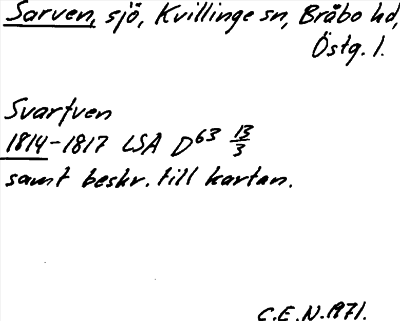 Sarven, sjö, Kvillinge sn, Bråbo hd,
Östg. l.
Svartven
1814-1817 LSA D63 13/3
samt beskr. till kartan.
C.E.N. 1971.